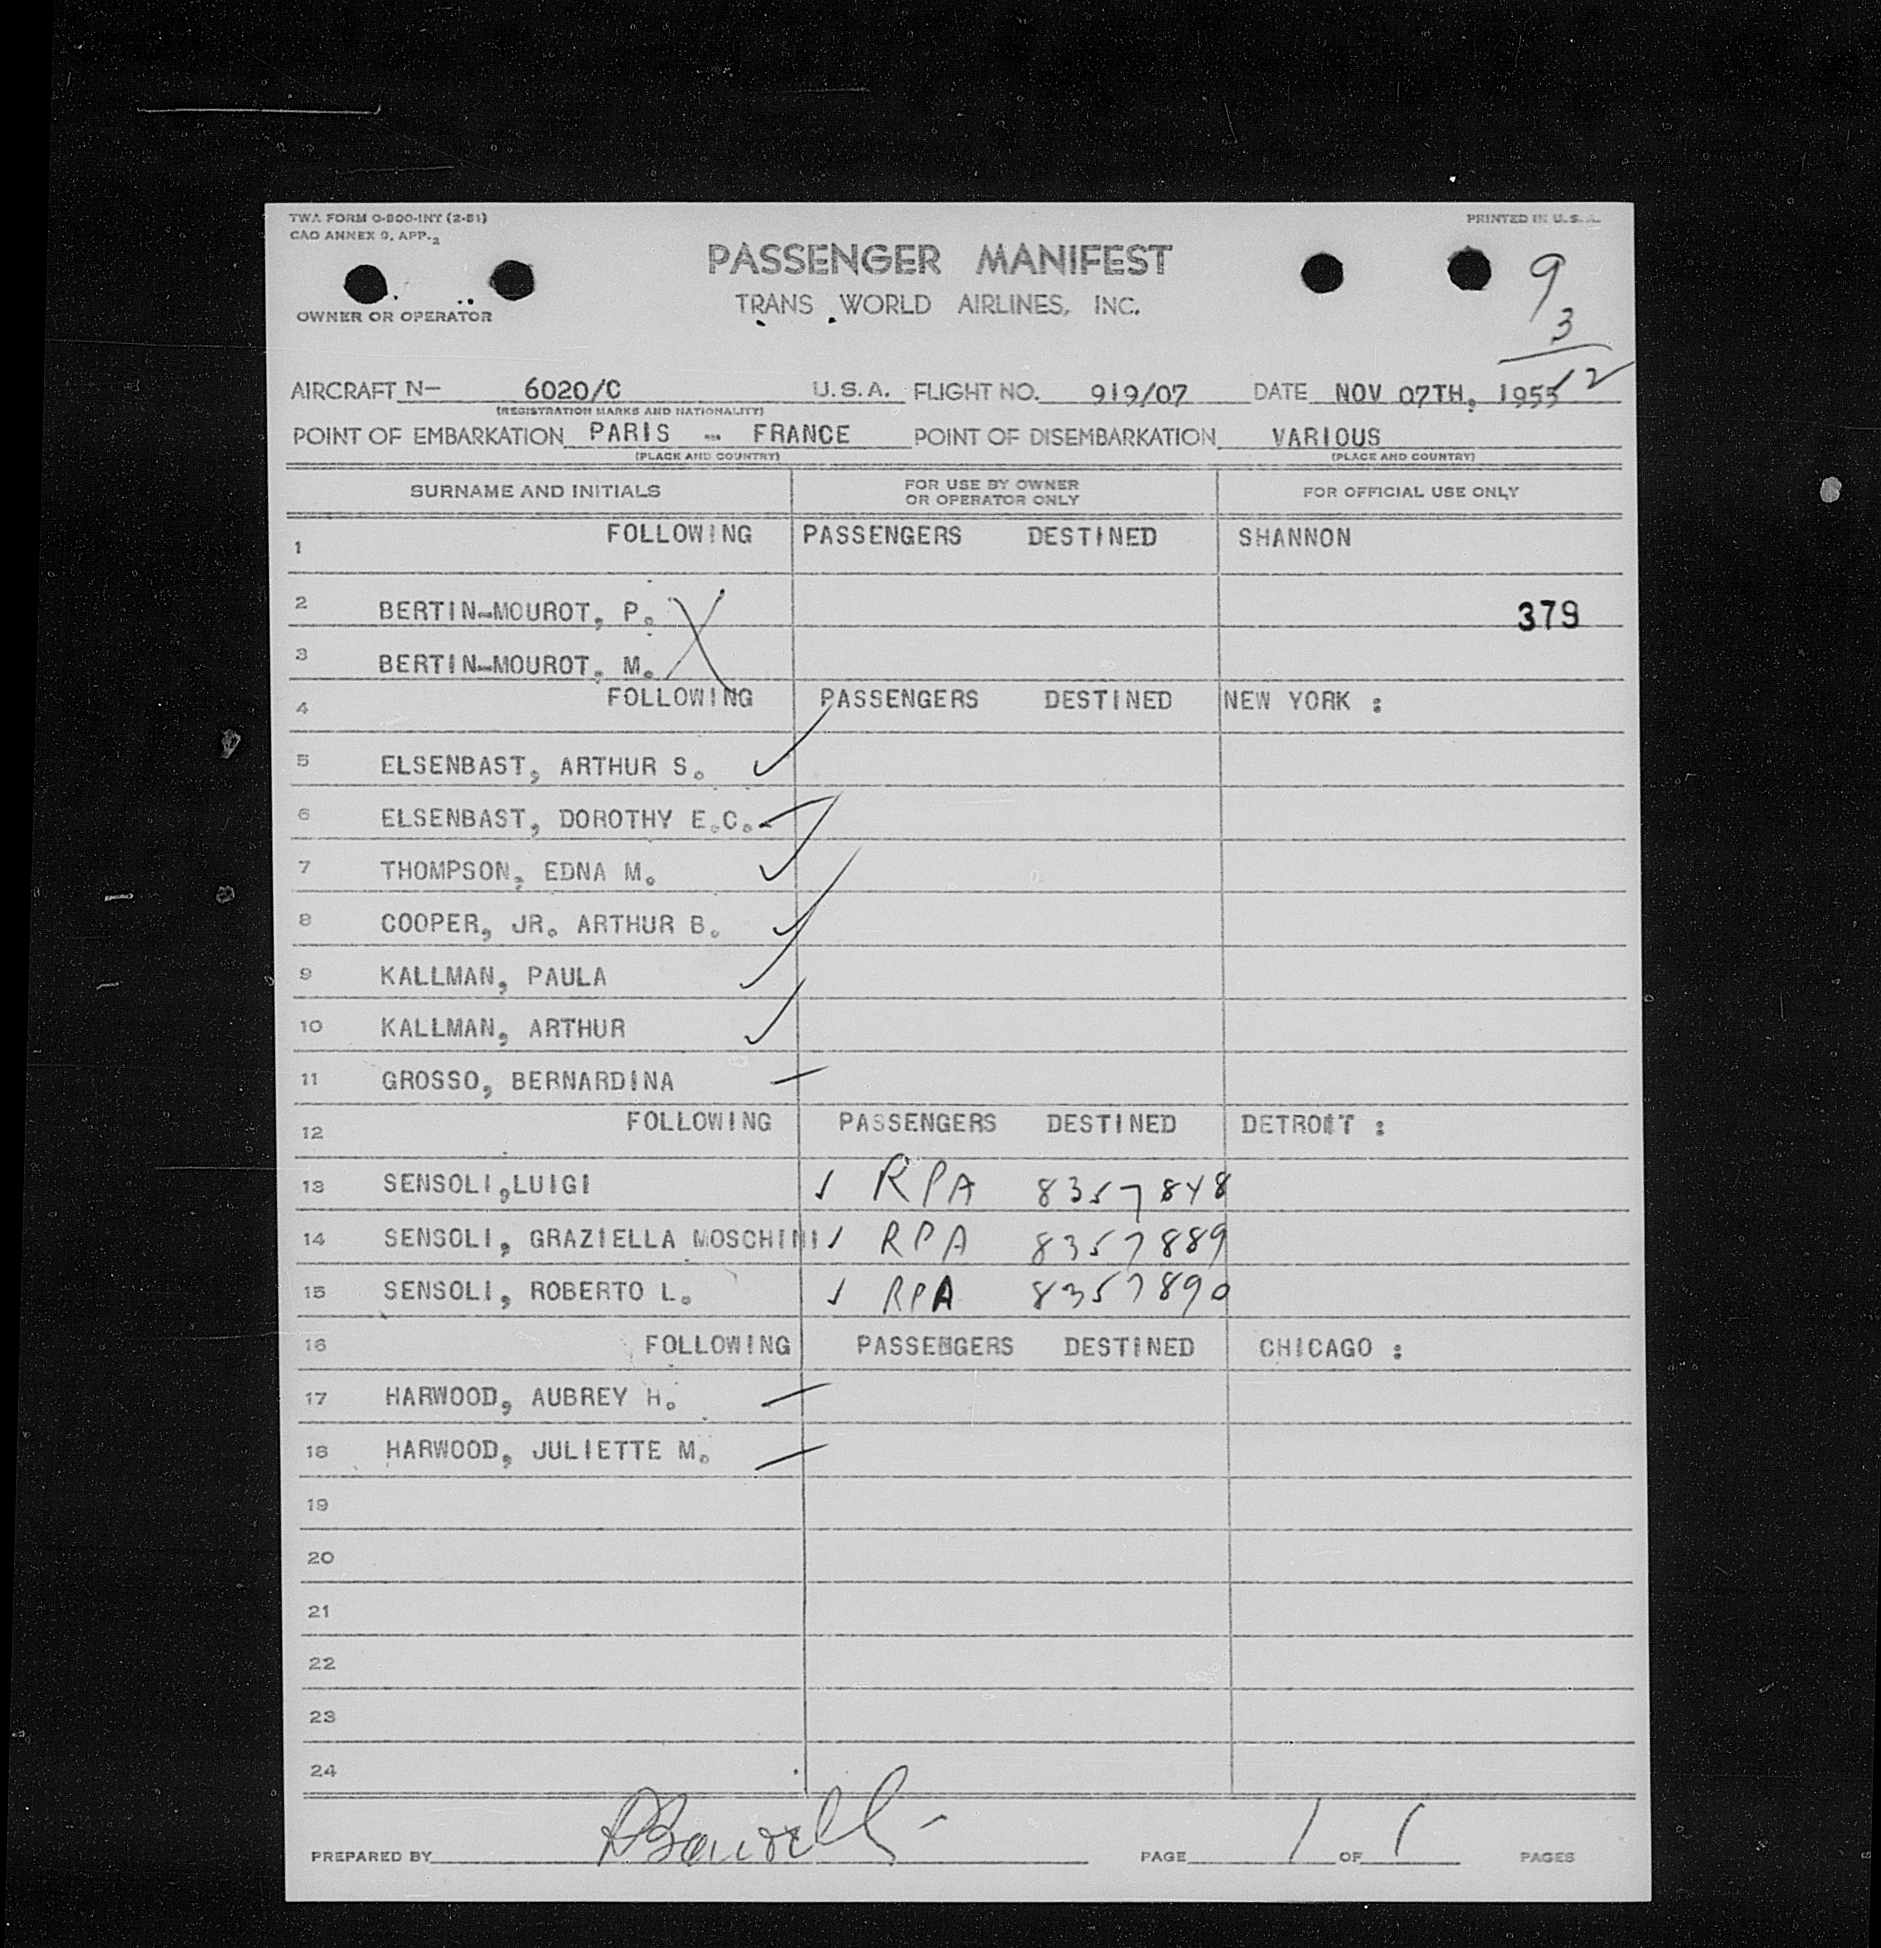 TWA FORM O-800-INT (2-51)
CAO ANNEX 9, APP. 2
PRINTED IN U. S. A.
PASSENGER MANIFEST
TRANS WORLD AIRLINES, INC.
9
3
12
OWNER OR OPERATOR
AIRCRAFT N- 6020/C U.S.A. FLIGHT NO. 919/07 DATE NOV 07TH, 1955
(REGISTRATION MARKS AND NATIONALITY)
POINT OF EMBARKATION PARIS - FRANCE POINT OF DISEMBARKATION VARIOUS
(PLACE AND COUNTRY) (PLACE AND COUNTRY)
SURNAME AND INITIALS FOR USE BY OWNER OR OPERATOR ONLY FOR OFFICIAL USE ONLY
1 FOLLOWING PASSENGERS DESTINED SHANNON
2 BERTIN-MOUROT, P. 379
3 BERTIN-MOUROT, M.
4 FOLLOWING PASSENGERS DESTINED NEW YORK :
5 ELSENBAST, ARTHUR S.
6 ELSENBAST, DOROTHY E.C.
7 THOMPSON, EDNA M.
8 COOPER, JR. ARTHUR B.
9 KALLMAN, PAULA
10 KALLMAN, ARTHUR
11 GROSSO, BERNARDINA
12 FOLLOWING PASSENGERS DESTINED DETROIT :
13 SENSOLI,LUIGI ✓ RPA 8357848
14 SENSOLI, GRAZIELLA MOSCHINI ✓ RPA 8357889
15 SENSOLI, ROBERTO L. ✓ RPA 8357890
16 FOLLOWING PASSENGERS DESTINED CHICAGO :
17 HARWOOD, AUBREY H.
18 HARWOOD, JULIETTE M.
19
20
21
22
23
24
PREPARED BY PAGE 1 OF 1 PAGES